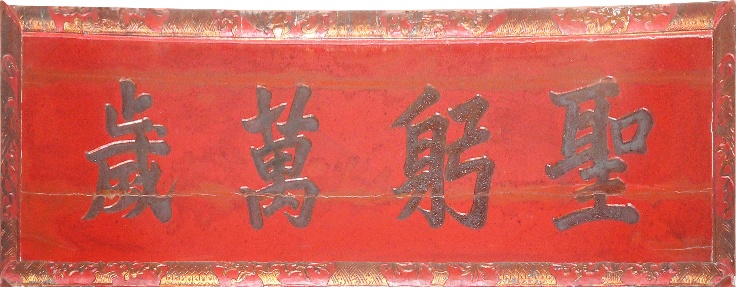 聖躬萬歲